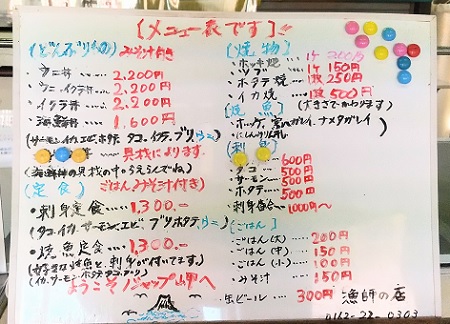 〔メニュー表です〕!!
〔どんぶりもの〕みそ汁付き
・ウニ丼 ・・・ 2,200円
・ウニ・イクラ丼 ・・・ 2,200円
・イクラ丼 ・・・ 2,200円
・海鮮丼 ・・・ 1,600円
(サーモン、イカ、エビ、ホタテ、タコ、イクラ、ブリ、ウニ)
具材によります。
(海鮮丼の具材の中からえらんでね)
〔定食〕(ごはんみそ汁付き)
・刺身定食 ・・・ 1,300-
(タコ、イカ、サーモン、エビ、ブリ、ホタテ、ウニ)
・焼魚定食 ・・・ 1,300-
(好きな焼魚と刺身が付いてます)
(イカ、サーモン、ホタテ、タコ、ブリ)
ようこそノシャップ岬へ
〔焼物〕
・ホッキ焼 1ケ 200円
・ツブ 1ケ 150円
・ホタテ焼 1枚 250円
・イカ焼 1枚 500円
〔焼魚〕(大きさでかわります)
・ホッケ、宗八ガレイ、ナメタガレイ
・にしん
〔刺身〕
600円
・タコ ・・・ 500円
・サーモン ・・・ 500円
・ホタテ ・・・ 500円
・刺身盛合 ・・・ 1000円〜
〔ごはん〕
・ごはん(大) ・・・ 200円
・ごはん(中) ・・・ 150円
・ごはん(小) ・・・ 100円
・みそ汁 ・・・ 150円
生ビール ・・・ 300円
漁師の店
0162-22-0303